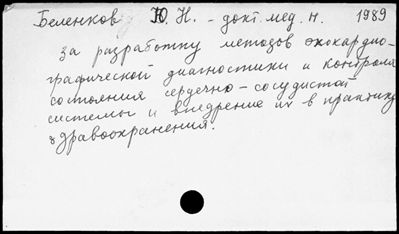 Беленков Ю. Н. – докт. мед. н. 1989
за разработку методов эхокардио-
графической диагностики и контроля
состояния сердечно-сосудистой
системы и внедрение их в практику
здравоохранения.